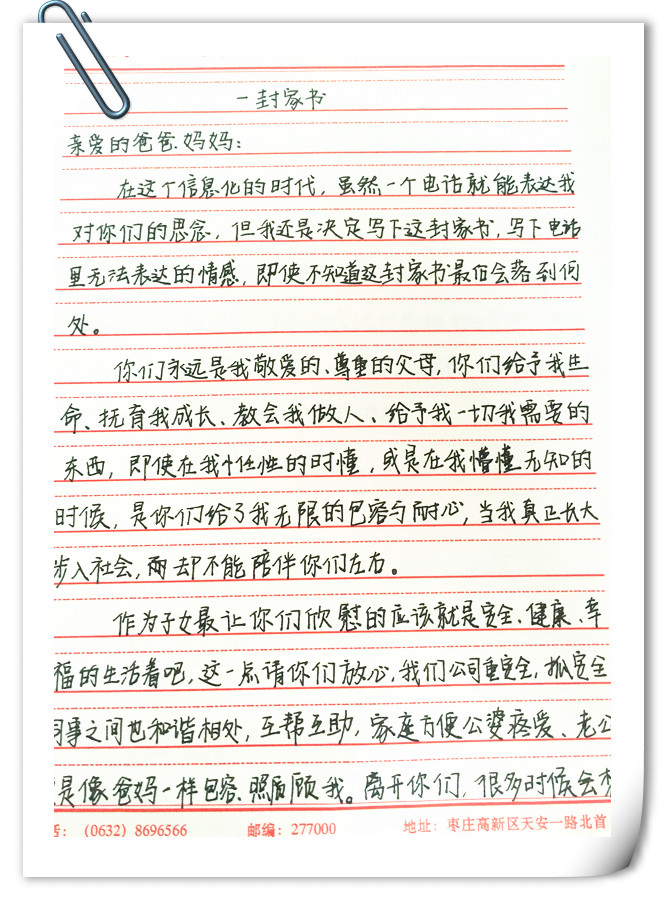 一封家书
亲爱的爸爸、妈妈:
在这个信息化的时代,虽然一个电话就能表达我
对你们的思念,但我还是决定写下这封家书,写下电话
里无法表达的情感,即使不知道这封家书最后会落到何
处。
你们永远是我敬爱的、尊重的父母,你们给予我生
命、抚育我成长、教会我做人、给予我一切我需要的
东西,即使在我任性的时懂,或是在我懵懂无知的
时候,是你们给了我无限的包容与耐心,当我真正长大
步入社会,而却不能陪伴你们左右。
作为子女最让你们欣慰的应该就是安全、健康、幸
福的生活着吧,这一点请你们放心,我们公司重安全,抓安全
同事之间也和谐相处,互帮互助,家庭方便公婆疼爱、老公
是像爸妈一样包容、照顾我。离开你们,很多时候会
话:(0632)8696566 邮编:277000 地址:枣庄高新区天安一路北首